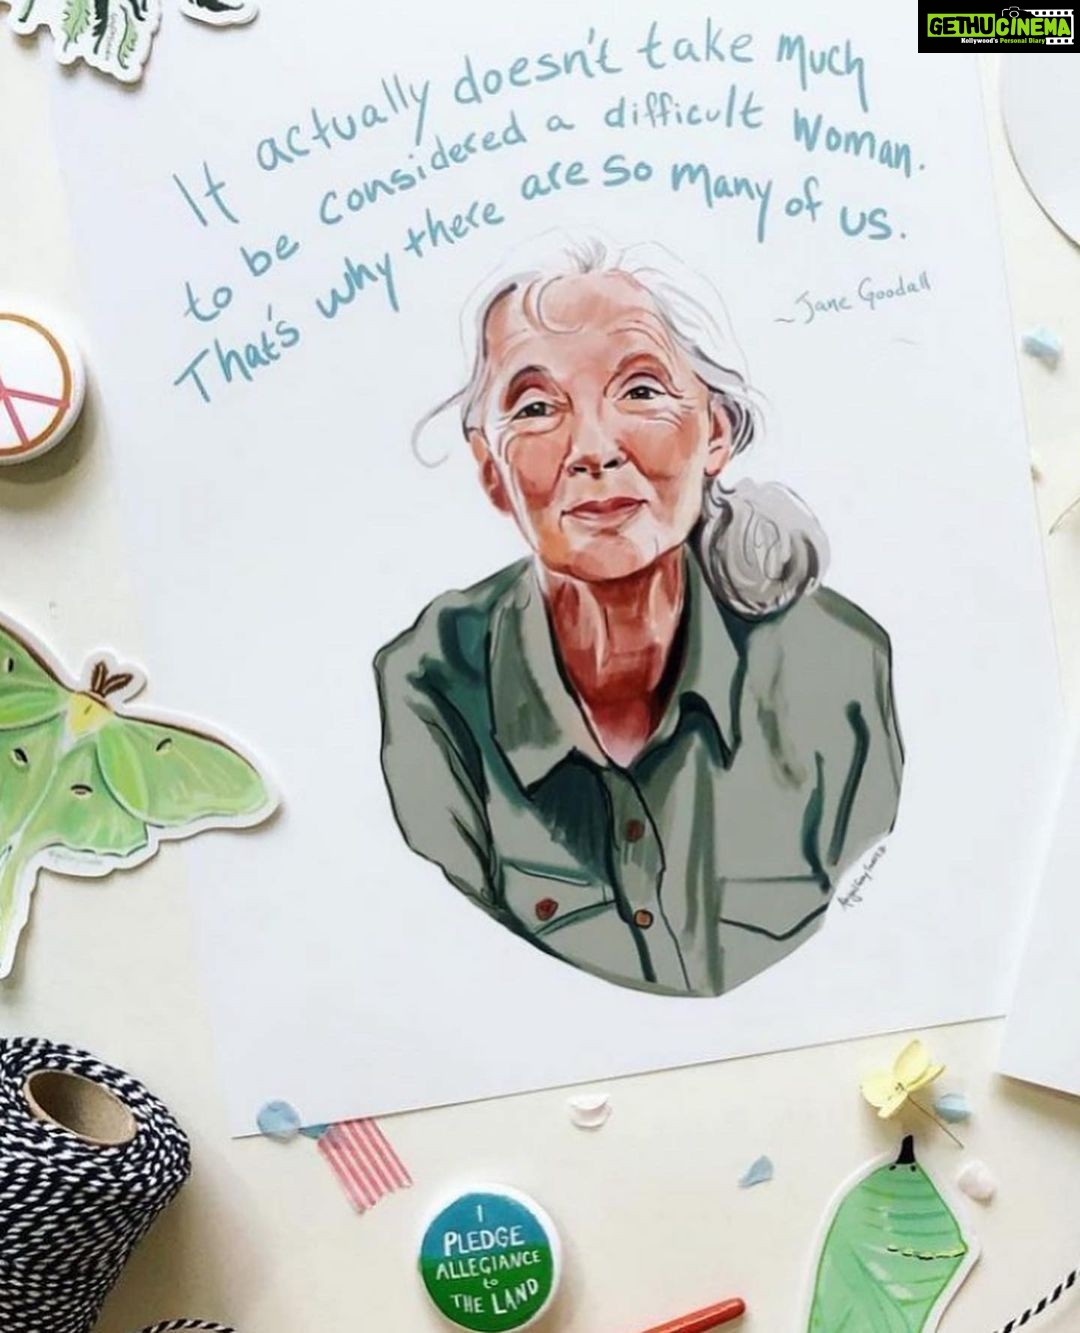 GETHU CINEMA
Kollywood's Personal Diary
It actually doesn't take much
to be considered a difficult woman.
That's why there are so many of us.
~ Jane Goodall
I
PLEDGE
ALLEGIANCE
to
THE LAND